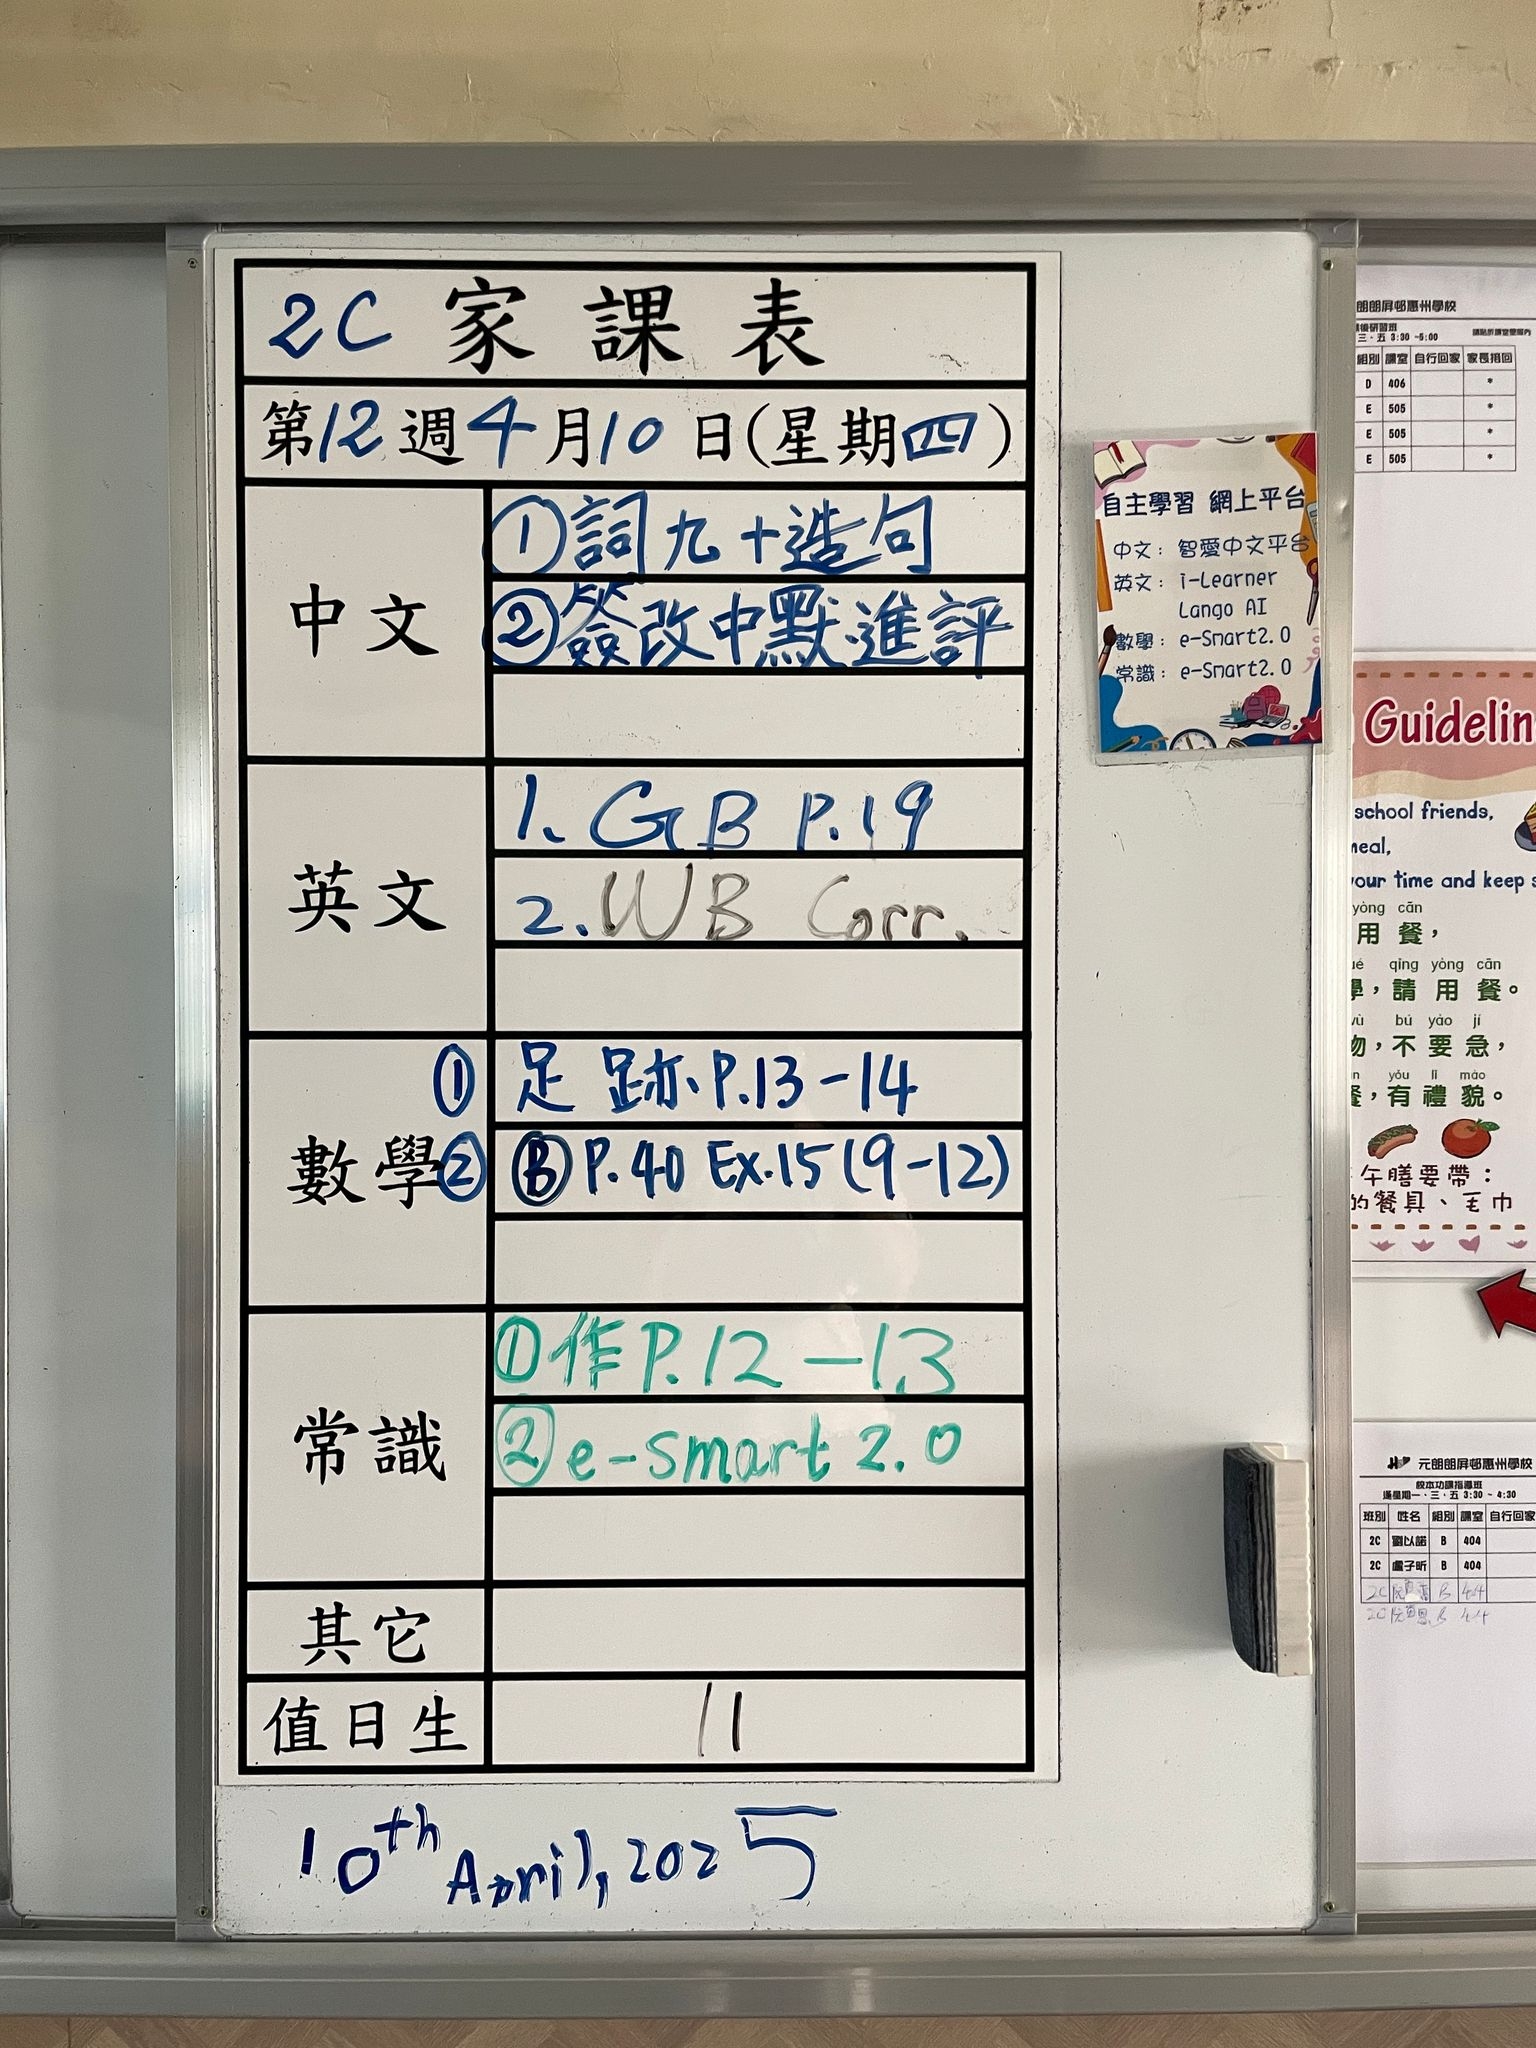 2C 家課表
第12週4月10日(星期四)
中文
①詞九+造句
②簽改中默進評
英文
1. GB P.19
2. WB Corr.
數學
① 足跡 P.13-14
② Ⓑ P.40 Ex.15(9-12)
常識
①作P.12-13
②e-smart 2.0
其它
值日生
11
10th April, 2025
自主學習 網上平台
中文: 智愛中文平台
英文: i-Learner
Lango AI
數學: e-Smart2.0
常識: e-Smart2.0
朗朗屏邨惠州學校
後研習班
三、五 3:30 -5:00
組別 課室 自行回家 家長接回
D 406 *
E 505 *
E 505 *
E 505 *
Guidelin
school friends,
meal,
your time and keep s
yòng cān
用餐,
qǐng yòng cān
學,請用餐。
bú yào jí
物,不要急,
yǒu lǐ mào
餐,有禮貌。
午膳要帶:
的餐具、毛巾
元朗朗屏邨惠州學校
校本功課指導班
逢星期一、三、五 3:30 ~ 4:30
班別 姓名 組別 課室 自行回家
2C 劉以諾 B 404
2C 盧子昕 B 404
2C B 404
2C B 404